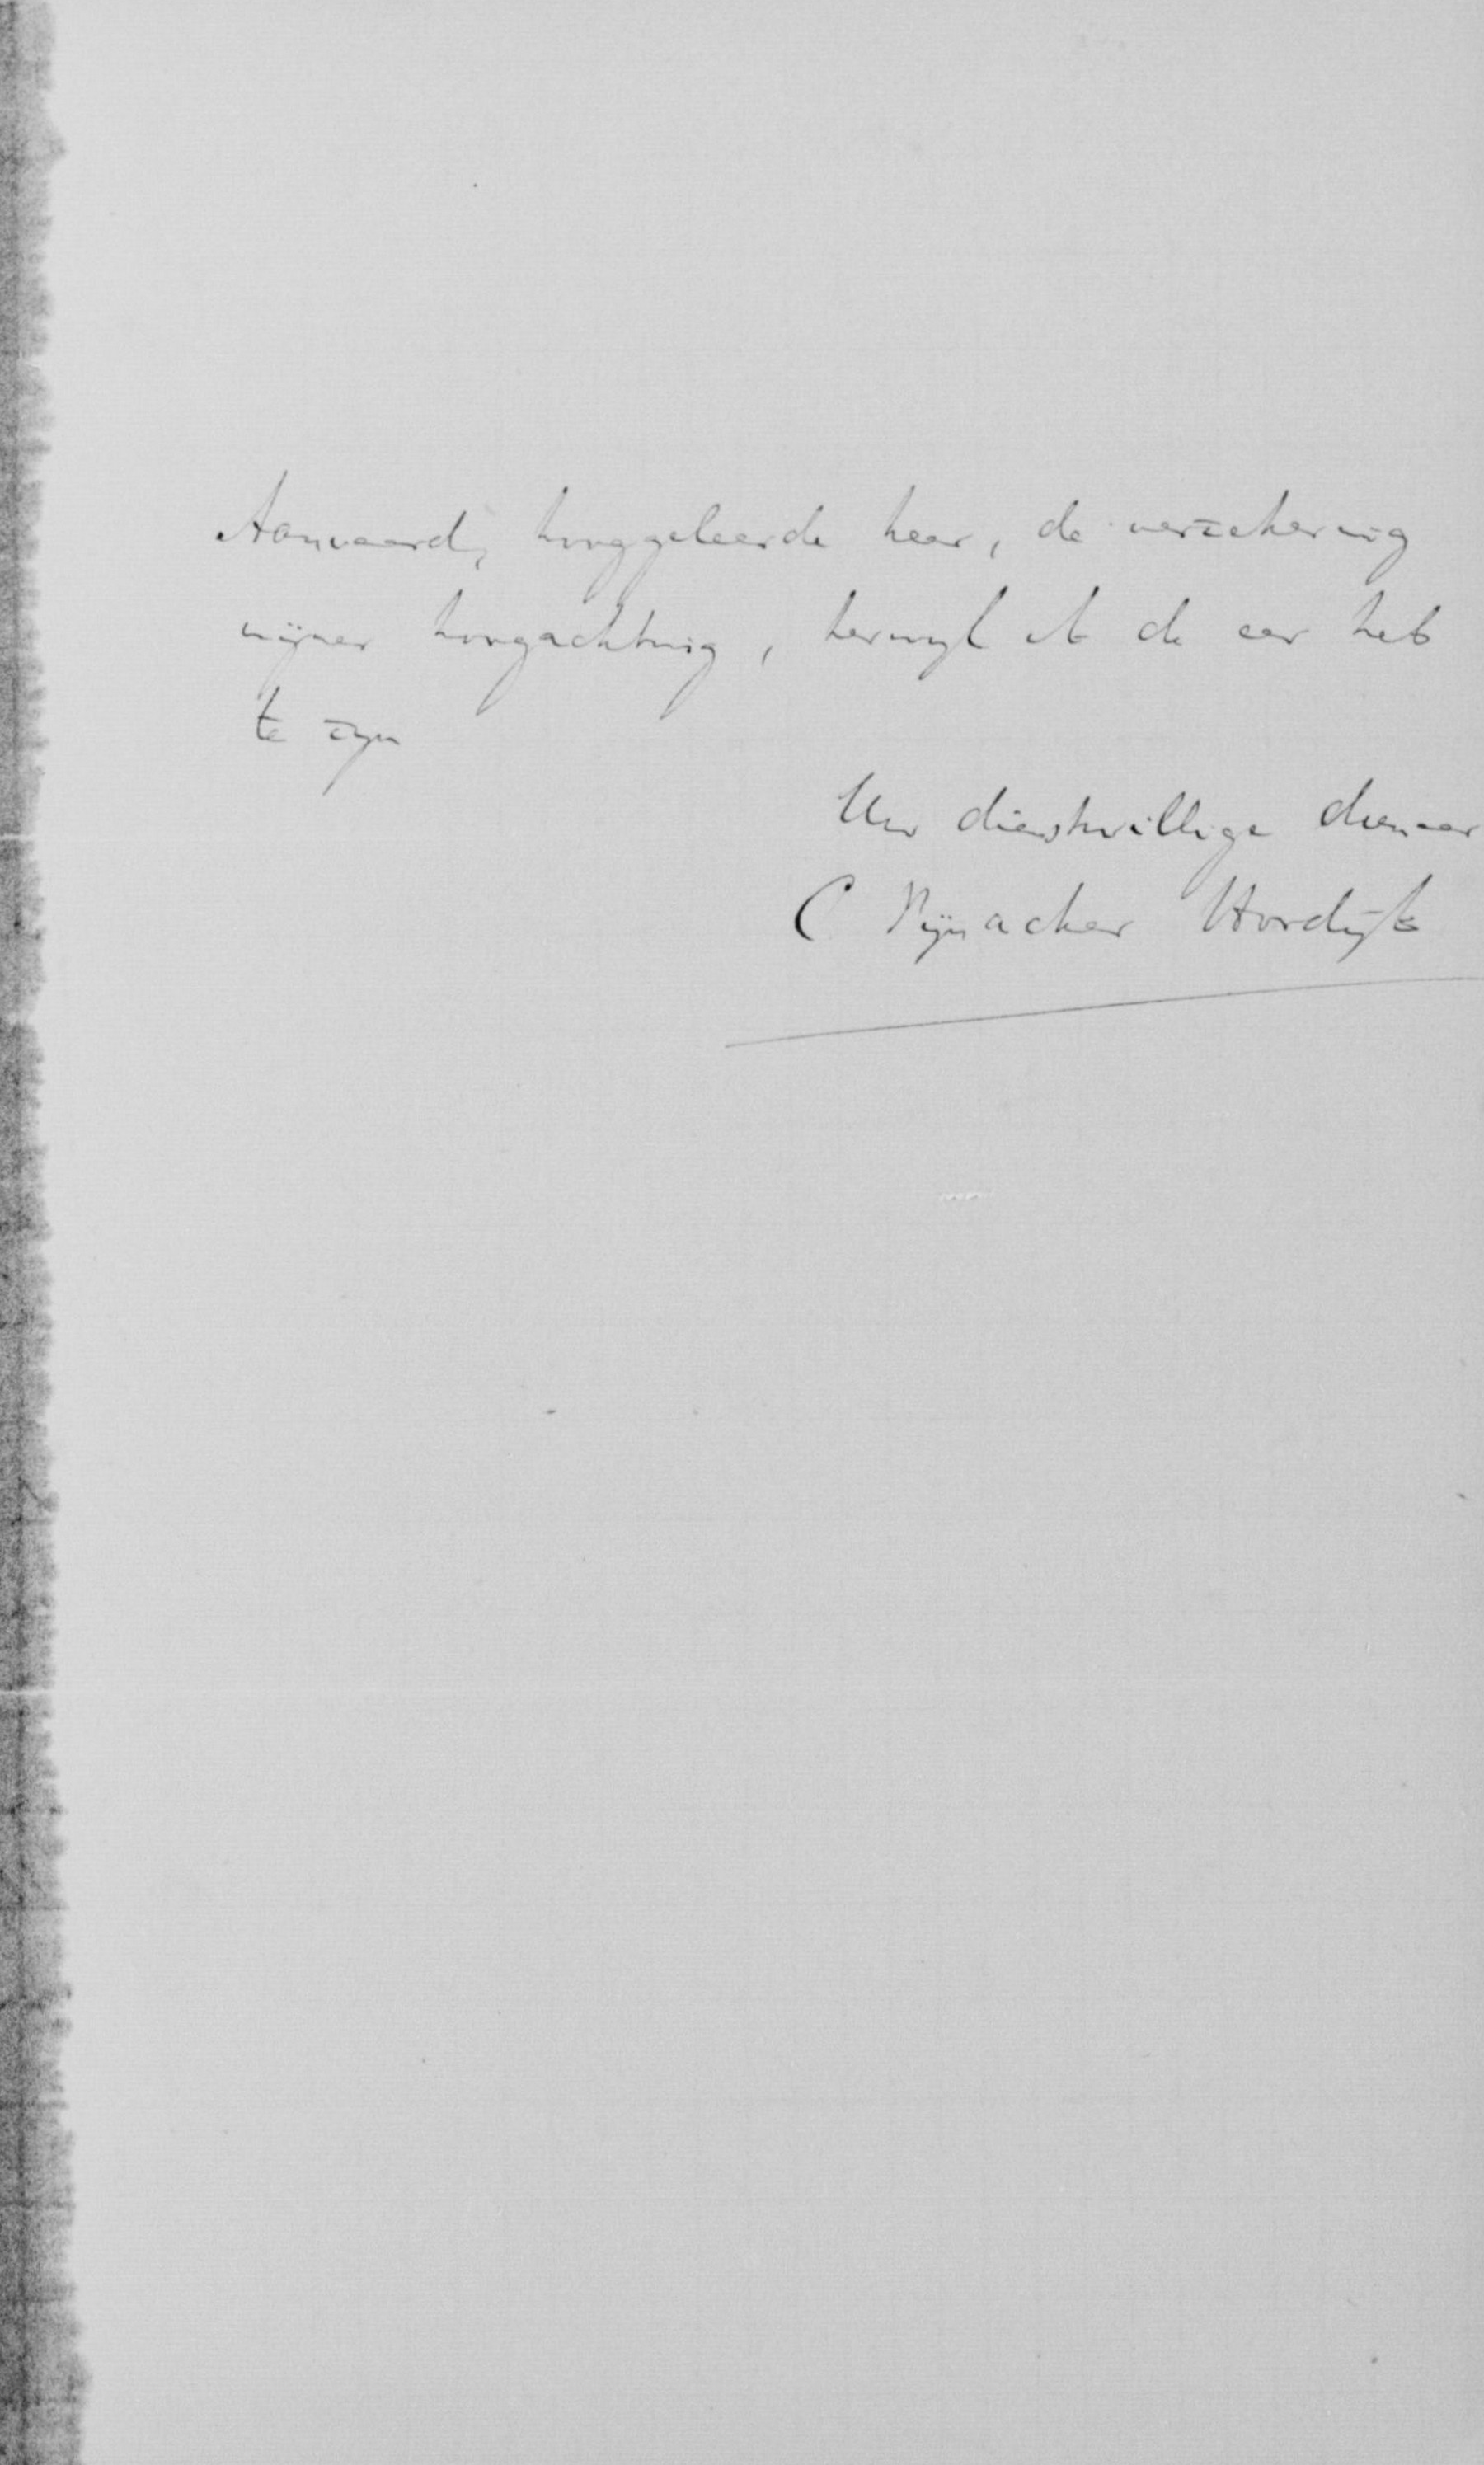 Aanvaard, hooggeleerde heer, de verzekering
mijner hoogachting, terwijl ik de eer heb
te zijn
Uw dienstwillige dienaar
C Rijnacker Hordijk